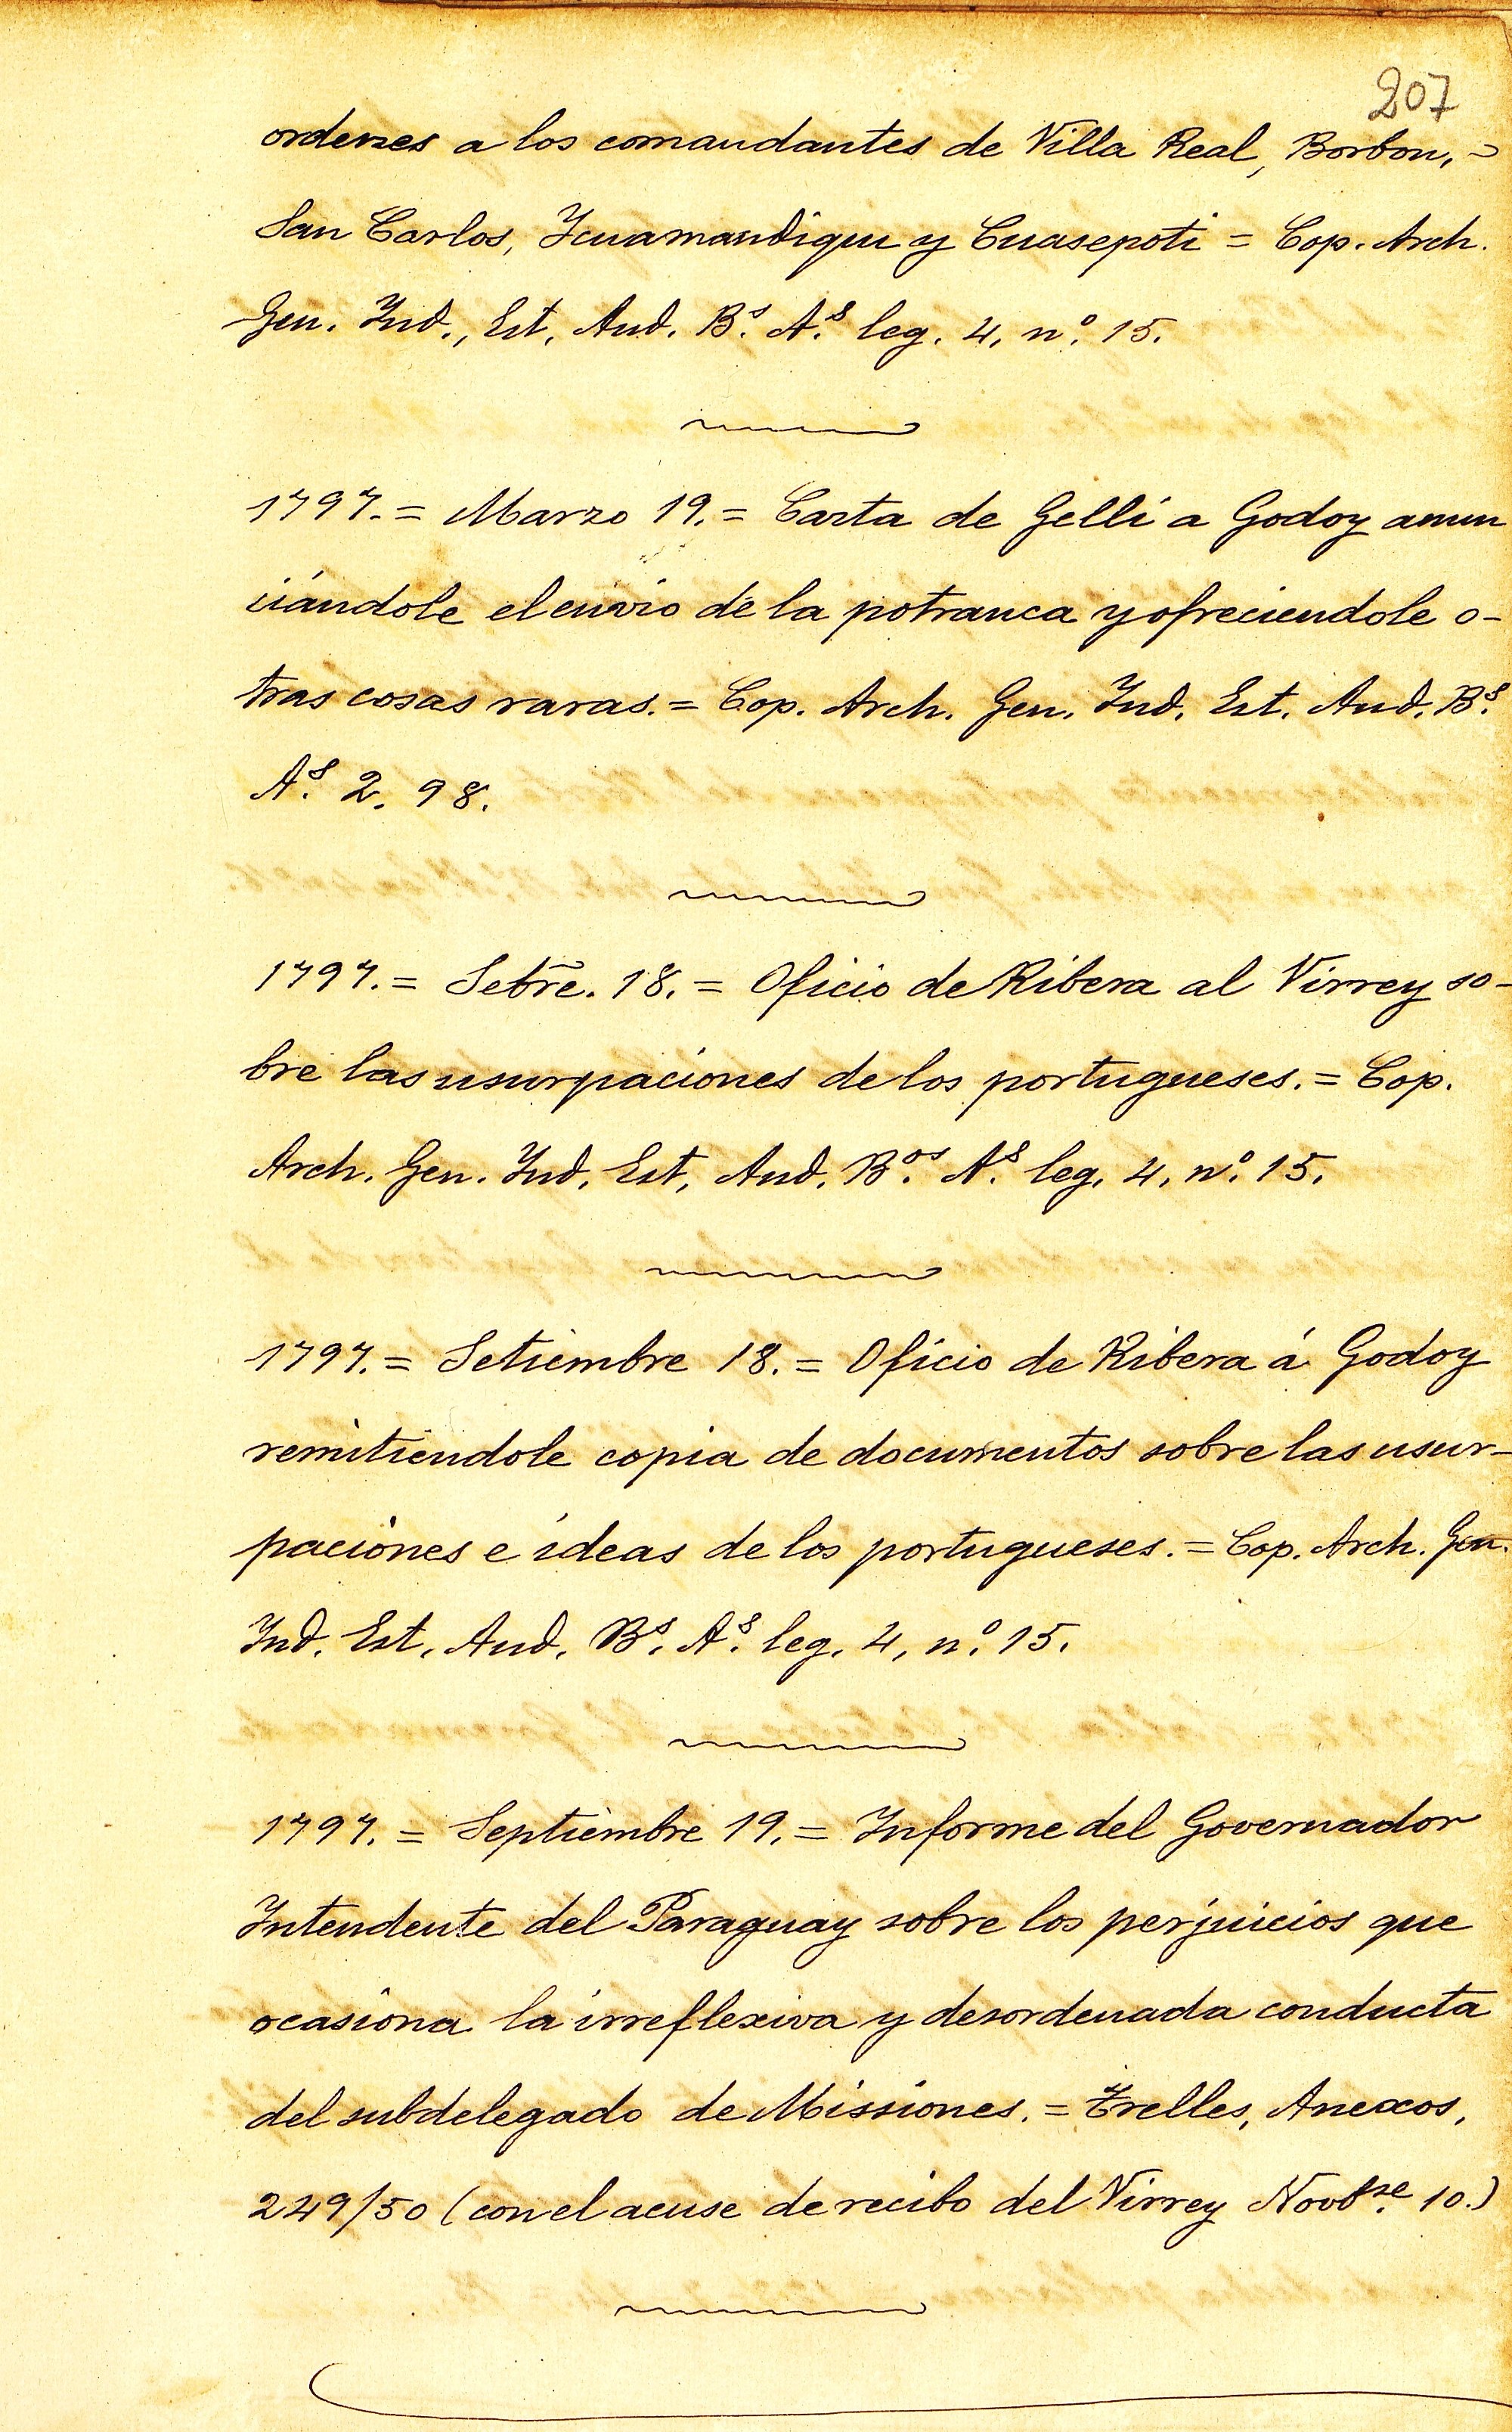 207
ordenes a los comandantes de Villa Real, Borbon, =
San Carlos, Icuamandiqui y Cuasepoti = Cop. Arch.
Gen. Ind., Est. Aud. Bˢ. Aˢ. leg. 4, nº. 15.
1797. = Marzo 19. = Carta de Gelli a Godoy anun
ciándole el envio de la potranca y ofreciendole o-
tras cosas raras. = Cop. Arch. Gen. Ind. Est. Aud. Bˢ.
Aˢ. 2. 98.
1797. = Setr̃e. 18. = Oficio de Ribera al Virrey so-
bre las usurpaciones de los portugueses. = Cop.
Arch. Gen. Ind. Est. Aud. Bᵒˢ. Aˢ. leg. 4, nº. 15.
1797. = Setiembre 18. = Oficio de Ribera á Godoy
remitiendole copia de documentos sobre las usur-
paciones e ideas de los portugueses. = Cop. Arch. Gen.
Ind. Est. Aud. Bˢ. Aˢ. leg. 4, nº. 15.
1797. = Septiembre 19. = Informe del Governador
Intendente del Paraguay sobre los perjuicios que
ocasiona la irreflexiva y desordenada conducta
del subdelegado de Missiones. = Trelles, Anexos,
249/50 (con el acuse de recibo del Virrey Novbʳᵉ. 10.)